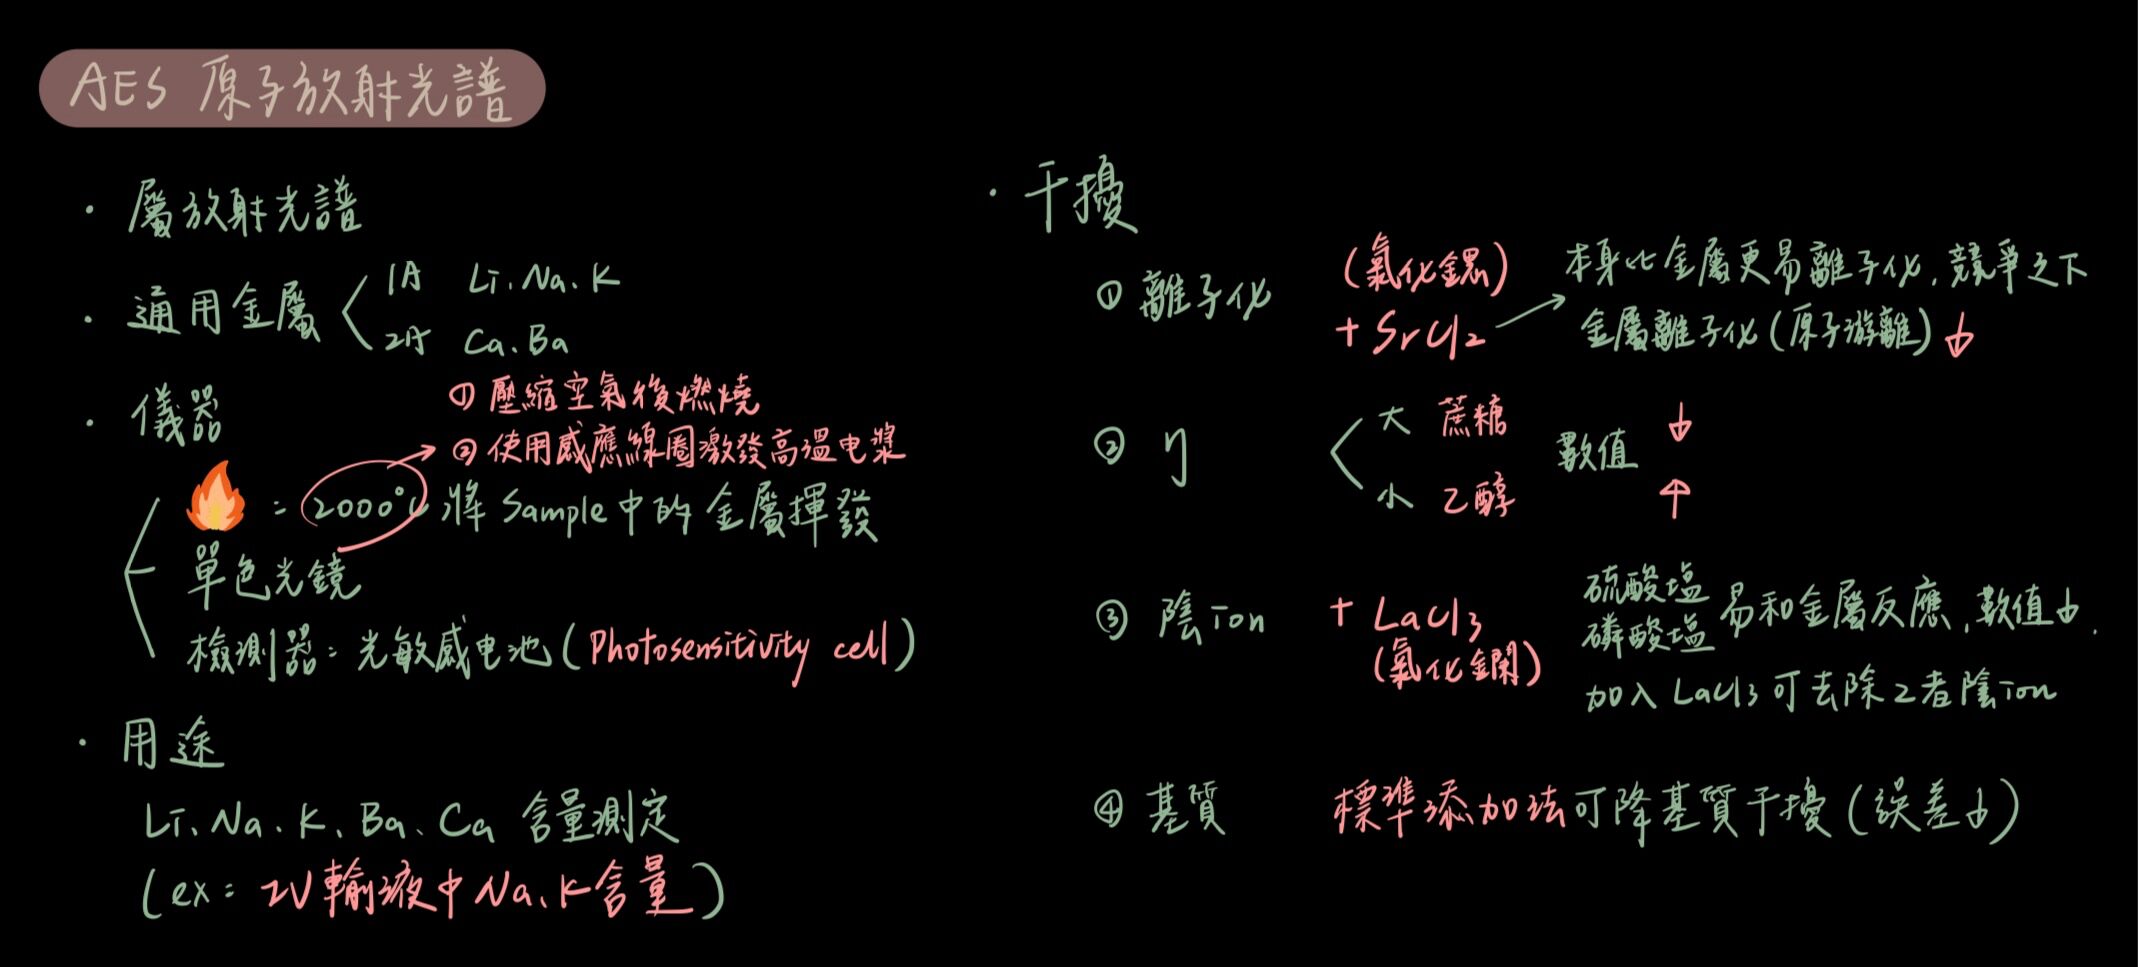 AES 原子放射光譜
· 屬放射光譜
· 通用金屬 1A Li、Na、K
2A Ca、Ba
· 儀器
① 壓縮空氣後燃燒
② 使用感應線圈激發高溫电漿
= 2000°C 將 Sample 中的金屬揮發
單色光鏡
檢測器：光敏感电池 (Photosensitivity cell)
· 用途
Li、Na、K、Ba、Ca 含量測定
(ex: IV輸液中 Na、K含量)
· 干擾
① 離子化 (氯化鍶) + SrCl2 → 本身比金屬更易離子化，競爭之下
金屬離子化 (原子游離) ↓
② η 大 蔗糖 數值 ↓
小 乙醇 ↑
③ 陰ion + LaCl3 (氯化鑭)
硫酸塩
磷酸塩 易和金屬反應，數值↓.
加入 LaCl3 可去除2者陰ion
④ 基質 標準添加法可降基質干擾 (誤差↓)